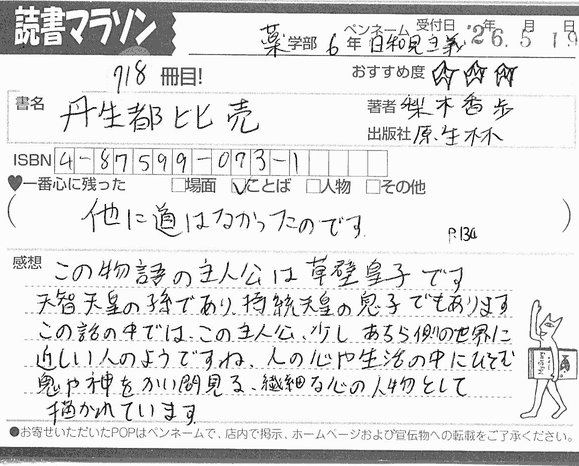 読書マラソン
薬学部 6年 ペンネーム 日和見主義 受付日 '26年 5月 19
718冊目! おすすめ度 ☆☆☆
書名 丹生都比売
著者 梨木香歩
出版社 原生林
ISBN 4-87599-073-1
♥一番心に残った □場面 ☑ことば □人物 □その他
(他に道はなかったのです P.134)
感想 この物語の主人公は草壁皇子です
天智天皇の孫であり、持統天皇の息子でもあります
この話の中では、この主人公、少しあちら側の世界に
近しい人のようですね、人の心や生活の中にひそむ
鬼や神をかい間見る、繊細な心の人物として
描かれています
●お寄せいただいたPOPはペンネームで、店内で掲示、ホームページおよび宣伝物への転載をご了承ください。